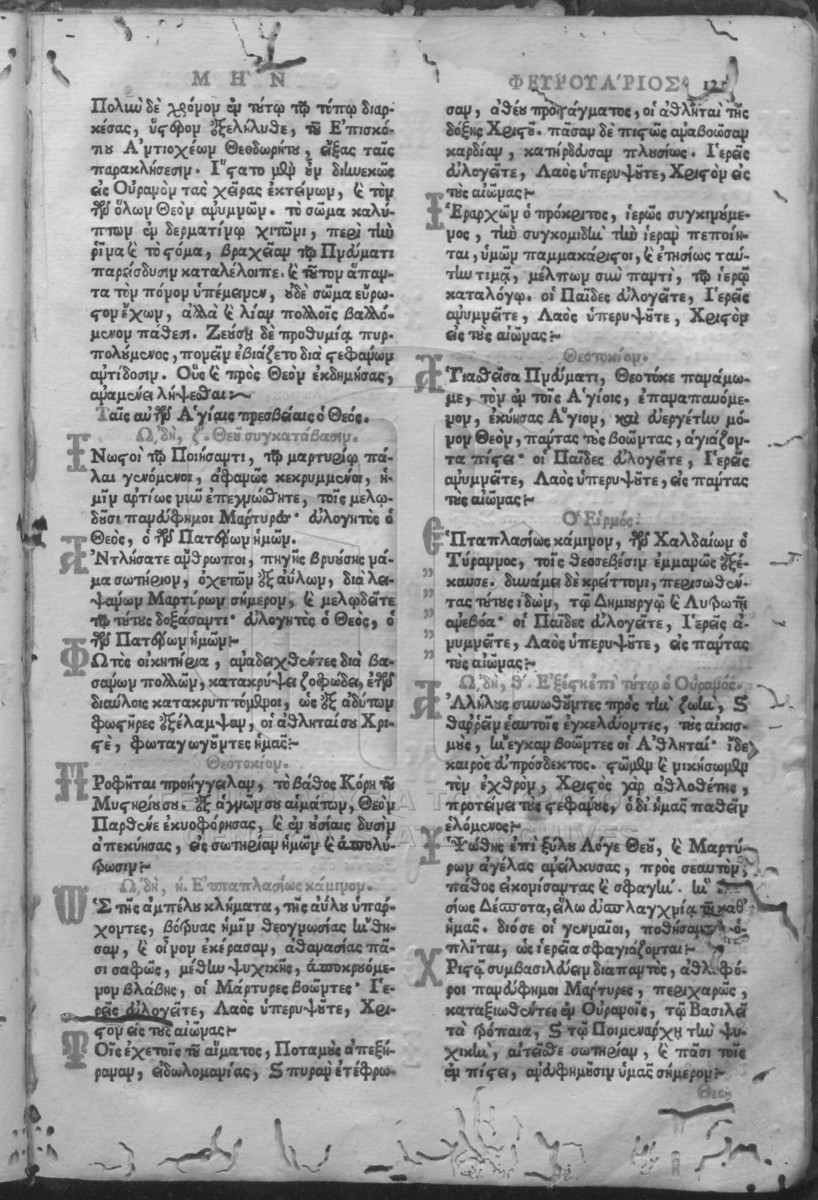 ΜΗΝ ΦΕΥΡΟΥΑΡΙΟΣ
Πολὺν δὲ χρόνον ἐν τούτῳ τῷ τόπῳ διαρ-
κέσας, ὕστερον ἐξελήλυθε, τοῦ Ἐπισκό-
που Ἀντιοχέων Θεοδωρήτου, εἴξας ταῖς
παρακλήσεσιν. Ἵστατο μὲν οὖν διηνεκῶς
εἰς Οὐρανὸν τὰς χεῖρας ἐκτείνων, καὶ τὸν
τῶν ὅλων Θεὸν ἀνυμνῶν. τὸ σῶμα καλύ-
πτων ἐν δερματίνῳ χιτῶνι, περὶ τὴν
ῥῖνα καὶ τὸ στόμα, βραχεῖαν τῷ Πνεύματι
παρείσδυσιν καταλέλοιπε. καὶ τοῦτον ἅπαν-
τα τὸν πόνον ὑπέμεινεν, οὐδὲ σῶμα εὔρω-
στον ἔχων, ἀλλὰ καὶ λίαν πολλοῖς βαλλό-
μενον πάθεσι. Ζεούσῃ δὲ προθυμίᾳ πυρ-
πολούμενος, πονεῖν ἐβιάζετο διὰ στεφάνων
ἀντίδοσιν. Οὓς καὶ πρὸς Θεὸν ἐκδημήσας,
ἀναμένει λήψεσθαι.
Ταῖς αὐτῶν Ἁγίαις πρεσβείαις ὁ Θεός.
ᾨδὴ, ζ. Θεοῦ συγκατάβασιν.
Γνωστοὶ τῷ Ποιήσαντι, τῷ μαρτυρίῳ πά-
λαι γενόμενοι, ἀφανῶς κεκρυμμένοι, ἡ-
μῖν ἀρτίως νῦν ἐπεγνώσθητε, τοῖς μελῳ-
δοῦσι πανεύφημοι Μάρτυρες· εὐλογητὸς ὁ
Θεὸς, ὁ τῶν Πατέρων ἡμῶν.
Ἀντλήσατε ἄνθρωποι, πηγῆς βρυούσης νά-
μα σωτήριον, ὀχετῶν ἐξ ἀΰλων, διὰ λει-
ψάνων Μαρτύρων σήμερον, καὶ μελῳδεῖτε
τῷ τούτους δοξάσαντι· εὐλογητὸς ὁ Θεὸς, ὁ
τῶν Πατέρων ἡμῶν:
Φωτὸς οἰκητήρια, ἀναδειχθέντες διὰ βα-
σάνων πολλῶν, κατακρύψει ζοφώδει, ἐν τῶν
διαύλοις κατακρυπτόμενοι, ὡς ἐξ ἀδύτων
φωστῆρες ἐξέλαμψαν, οἱ ἀθληταί σου Χρι-
στὲ, φωταγωγοῦντες ἡμᾶς:
Θεοτοκίον.
Προφῆται προήγγειλαν, τὸ βάθος Κόρη τοῦ
Μυστηρίου σου. ἐξ ἁγνῶν σου αἱμάτων, Θεὸν
Παρθένε ἐκυοφόρησας, καὶ ἐν οὐσίαις δυσὶν
ἀπεκύησας, εἰς σωτηρίαν ἡμῶν καὶ ἀπολύ-
τρωσιν:
ᾨδὴ, η. Ἑπταπλασίως κάμινον.
Ὡς τῆς ἀμπέλου κλήματα, τῆς ἀΰλου ὑπάρ-
χοντες, βότρυας ἡμῖν θεογνωσίας ἠνθήσαν
σαν, καὶ οἶνον ἐκέρασαν, ἀθανασίας πᾶ-
σι σαφῶς, μέθην ψυχικῆς, ἀποκρουόμε-
νον βλάβης, οἱ Μάρτυρες βοῶντες· Ἱε-
ρεῖς εὐλογεῖτε, Λαὸς ὑπερυψοῦτε, Χρι-
στὸν εἰς τοὺς αἰῶνας:
Τοῖς ὀχετοῖς τοῦ αἵματος, Ποταμοὺς ἀπεξή-
ραναν, εἰδωλομανίας, καὶ πυρὰν ἐτέφρω-
σαν, ἀθέου προστάγματος, οἱ ἀθληταὶ τῆς
δόξης Χριστοῦ. πᾶσαν δὲ πιστῶς ἀναβοῶσαν
καρδίαν, κατήρδευσαν πλουσίως. Ἱερεῖς
εὐλογεῖτε, Λαὸς ὑπερυψοῦτε, Χριστὸν εἰς
τοὺς αἰῶνας:
Ἱεραρχῶν ὁ πρόκριτος, ἱερῶς συγκινούμε-
νος, τὴν συγκομιδὴν τὴν ἱερὰν πεποίη-
ται, ὑμῶν παμμακάριστοι, καὶ ἐτησίως ταύ-
την τιμᾷ, μέλπων σὺν παντὶ, τῷ ἱερῷ
καταλόγῳ. οἱ Παῖδες εὐλογεῖτε, Ἱερεῖς
ἀνυμνεῖτε, Λαὸς ὑπερυψοῦτε, Χριστὸν
εἰς τοὺς αἰῶνας:
Θεοτοκίον.
Ἁγιασθεῖσα Πνεύματι, Θεοτόκε πανάμω-
με, τὸν ἐν τοῖς Ἁγίοις, ἐπαναπαυόμε-
νον, ἐκύησας Ἅγιον, καὶ εὐεργέτην μό-
νον Θεὸν, πάντας τοὺς βοῶντας, ἁγιάζον-
τα πίστει· οἱ Παῖδες εὐλογεῖτε, Ἱερεῖς
ἀνυμνεῖτε, Λαὸς ὑπερυψοῦτε, εἰς πάντας
τοὺς αἰῶνας:
Ὁ Εἱρμός.
Ἑπταπλασίως κάμινον, τῶν Χαλδαίων ὁ
Τύραννος, τοῖς θεοσεβέσιν ἐμμανῶς ἐξέ-
καυσε. δυνάμει δὲ κρείττονι, περισωθέν-
τας τούτους ἰδὼν, τῷ Δημιουργῷ καὶ Λυτρωτῇ
ἀνεβόα· οἱ Παῖδες εὐλογεῖτε, Ἱερεῖς ἀ-
νυμνεῖτε, Λαὸς ὑπερυψοῦτε, εἰς πάντας
τοὺς αἰῶνας:
ᾨδὴ, θ. Ἐξέστη ἐπὶ τούτῳ ὁ Οὐρανός.
Ἀλλήλους συνωθοῦντες πρὸς τὴν ζωὴν, καὶ
θαρρεῖν ἑαυτοῖς ἐγκελεύοντες, τοὺς αἰκισ-
μοὺς, ἤνεγκαν βοῶντες οἱ Ἀθληταί· ἴδε
καιρὸς εὐπρόσδεκτος. στῶμεν καὶ νικήσωμεν
τὸν ἐχθρὸν, Χριστὸς γὰρ ἀθλοθέτης,
προτείνει τοὺς στεφάνους, ὁ δι' ἡμᾶς παθεῖν
ἑλόμενος:
Ὑψώθης ἐπὶ ξύλου Λόγε Θεοῦ, καὶ Μαρτύ-
ρων ἀγέλας ἀνείλκυσας, πρὸς σεαυτὸν,
πάθος εἰκονίσαντας καὶ σφαγὴν. ἣν
σίως Δέσποτα, εἵλω εὐσπλαγχνίᾳ τῇ καθ'
ἡμᾶς. διό σε οἱ γενναῖοι, ποθήσαντες ὁ-
πλῖται, ὡς ἱερεῖα σφαγιάζονται:
Χριστῷ συμβασιλεύειν διαπαντὸς, ἀθλοφό-
ροι πανεύφημοι Μάρτυρες, περιχαρῶς,
καταξιωθέντες ἐν Οὐρανοῖς, τῷ Βασιλεῖ
τὰ τρόπαια, καὶ τῷ Ποιμενάρχῃ τὴν ψυ-
χικὴν, αἰτεῖσθε σωτηρίαν, καὶ πᾶσι τοῖς
ἐν πίστει, ἀνευφημοῦσιν ὑμᾶς σήμερον: